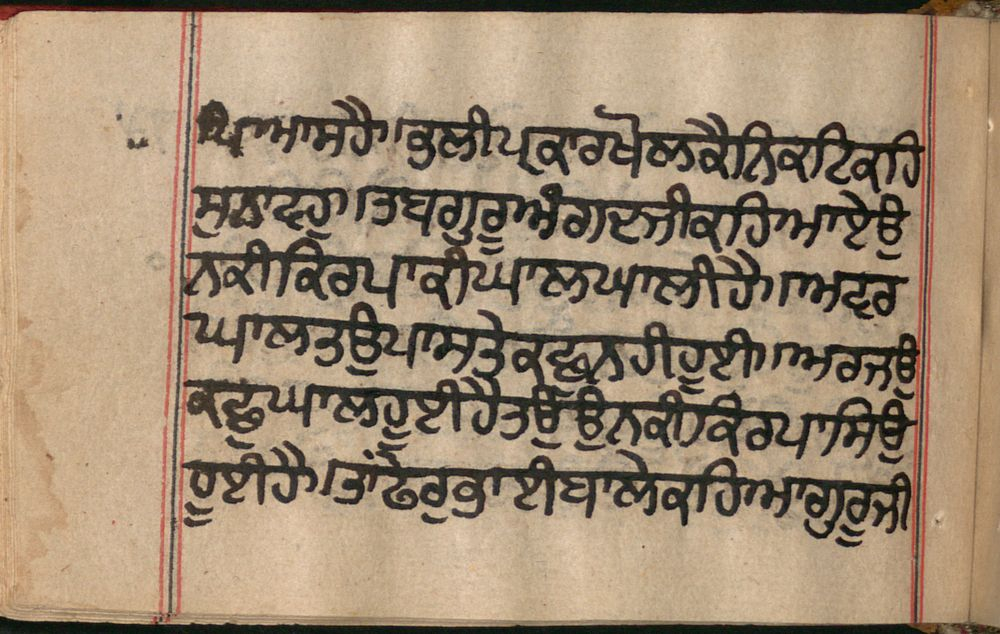 ਥਿਆਮਾਸਹੈ॥ਭਲੀਪ੍ਰਕਾਰਖੋਲਕੈਨਿਕਟਿਕਹਿ
ਸੁਨਾਵਹੁ॥ਤਬਗੁਰੂਅੰਗਦਜੀਕਹਿਆਏਉ
ਨਕੀਕਿਰਪਾਕੀਘਾਲਘਾਲੀਹੈ॥ਅਵਰ
ਘਾਲਤਉਪਾਸਤੇਕਛੂਨਹੀਹੂਈ॥ਅਰਜਉ
ਕਛੁਘਾਲਹੂਈਹੈਤਉਉਨਕੀਕਿਰਪਾਸਿਉ
ਹੂਈਹੈ॥ਤਾਂਫੇਰੁਭਾਈਬਾਲੇਕਹਿਆਗੁਰੂਜੀ